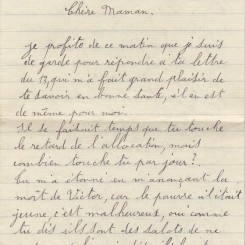 Chère Maman.
je profite de ce matin que je suis
de garde pour répondre à ta lettre
du 13, qui m'a fait grand plaisir de
te savoir en bonne santé, s'il en est
de même pour moi.
Il se faisait temps que tu touche
le retard de l'allocation, mais
combien touche tu par jour?
tu m'a étonné en m'anonçant la
mort de Victor, car le pauvre il était
jeune, c'est malheureux, ou comme
tu dis ils sont des salots de ne